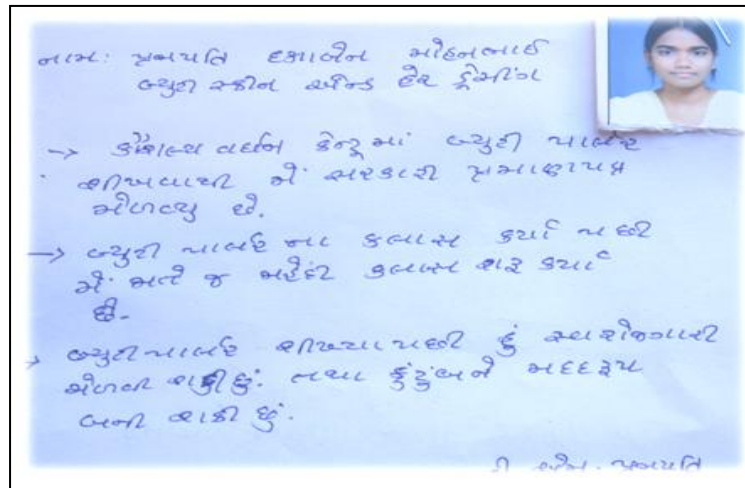 નામ: પ્રજાપતિ દક્ષાબેન મોહનભાઈ
બ્યુટી સ્કીન એન્ડ હેર ડ્રેસીંગ
→ કૌશલ્ય વર્ધન કેન્દ્રમાં બ્યુટી પાર્લર
શીખવાથી મેં સરકારી પ્રમાણપત્ર
મેળવ્યુ છે.
→ બ્યુટી પાર્લર ના કલાસ કર્યા પછી
મેં મારે જ મહેંદી કલાસ શરૂ કર્યા
છે.
→ બ્યુટીપાર્લર શીખ્યા પછી હું સ્વરોજગારી
મેળવી શકી છું. તથા કુટુંબને મદદરૂપ
બની શકી છું.
ડી એમ. પ્રજાપતિ